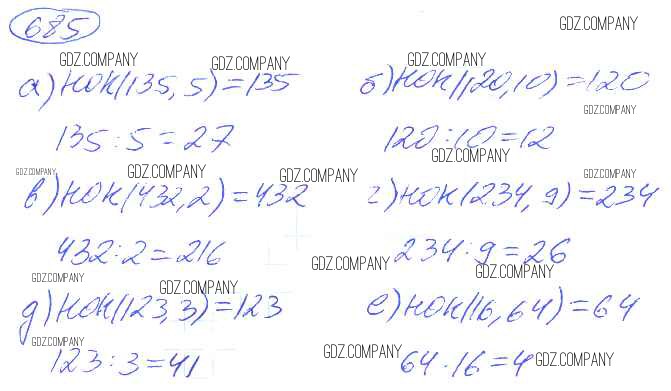 685
GDZ.COMPANY
GDZ.COMPANY GDZ.COMPANY GDZ.COMPANY
а) НОК(135, 5) = 135 б) НОК(120, 10) = 120
GDZ.COMPANY
135 : 5 = 27 120 : 10 = 12
GDZ.COMPANY
GDZ.COMPANY GDZ.COMPANY GDZ.COMPANY GDZ.COMPANY
в) НОК(432, 2) = 432 г) НОК(234, 9) = 234
432 : 2 = 216 234 : 9 = 26
GDZ.COMPANY GDZ.COMPANY
GDZ.COMPANY GDZ.COMPANY
д) НОК(123, 3) = 123 е) НОК(16, 64) = 64
GDZ.COMPANY GDZ.COMPANY GDZ.COMPANY
123 : 3 = 41 64 : 16 = 4